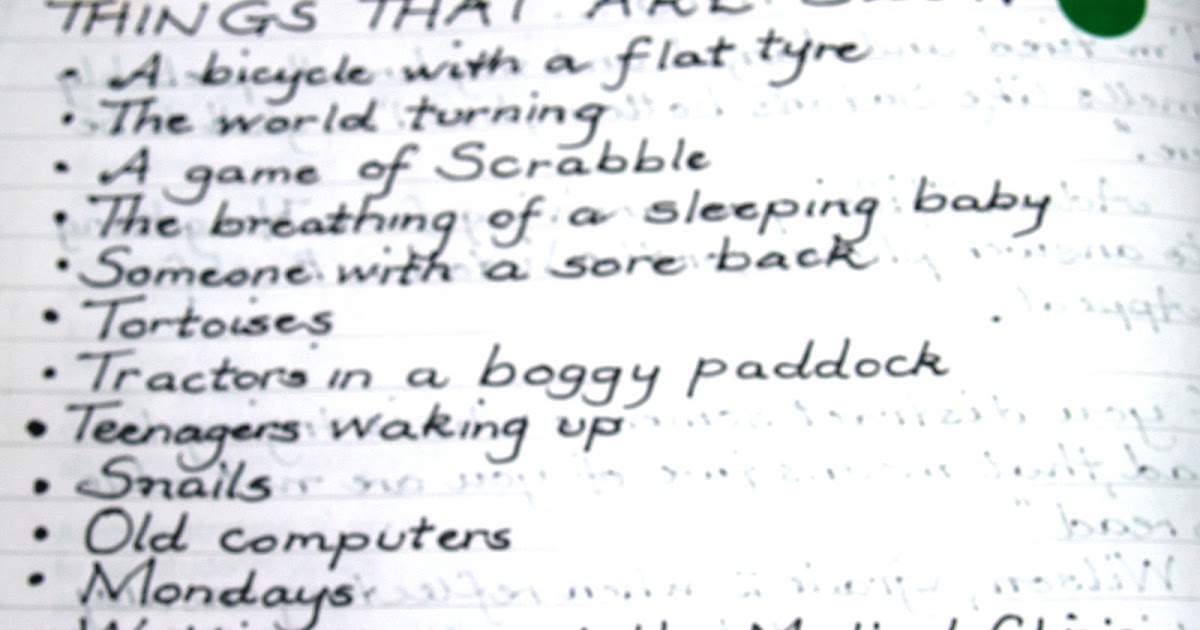 THINGS THAT ARE SLOW
• A bicycle with a flat tyre
• The world turning
• A game of Scrabble
• The breathing of a sleeping baby
• Someone with a sore back
• Tortoises
• Tractors in a boggy paddock
• Teenagers waking up
• Snails
• Old computers
• Mondays